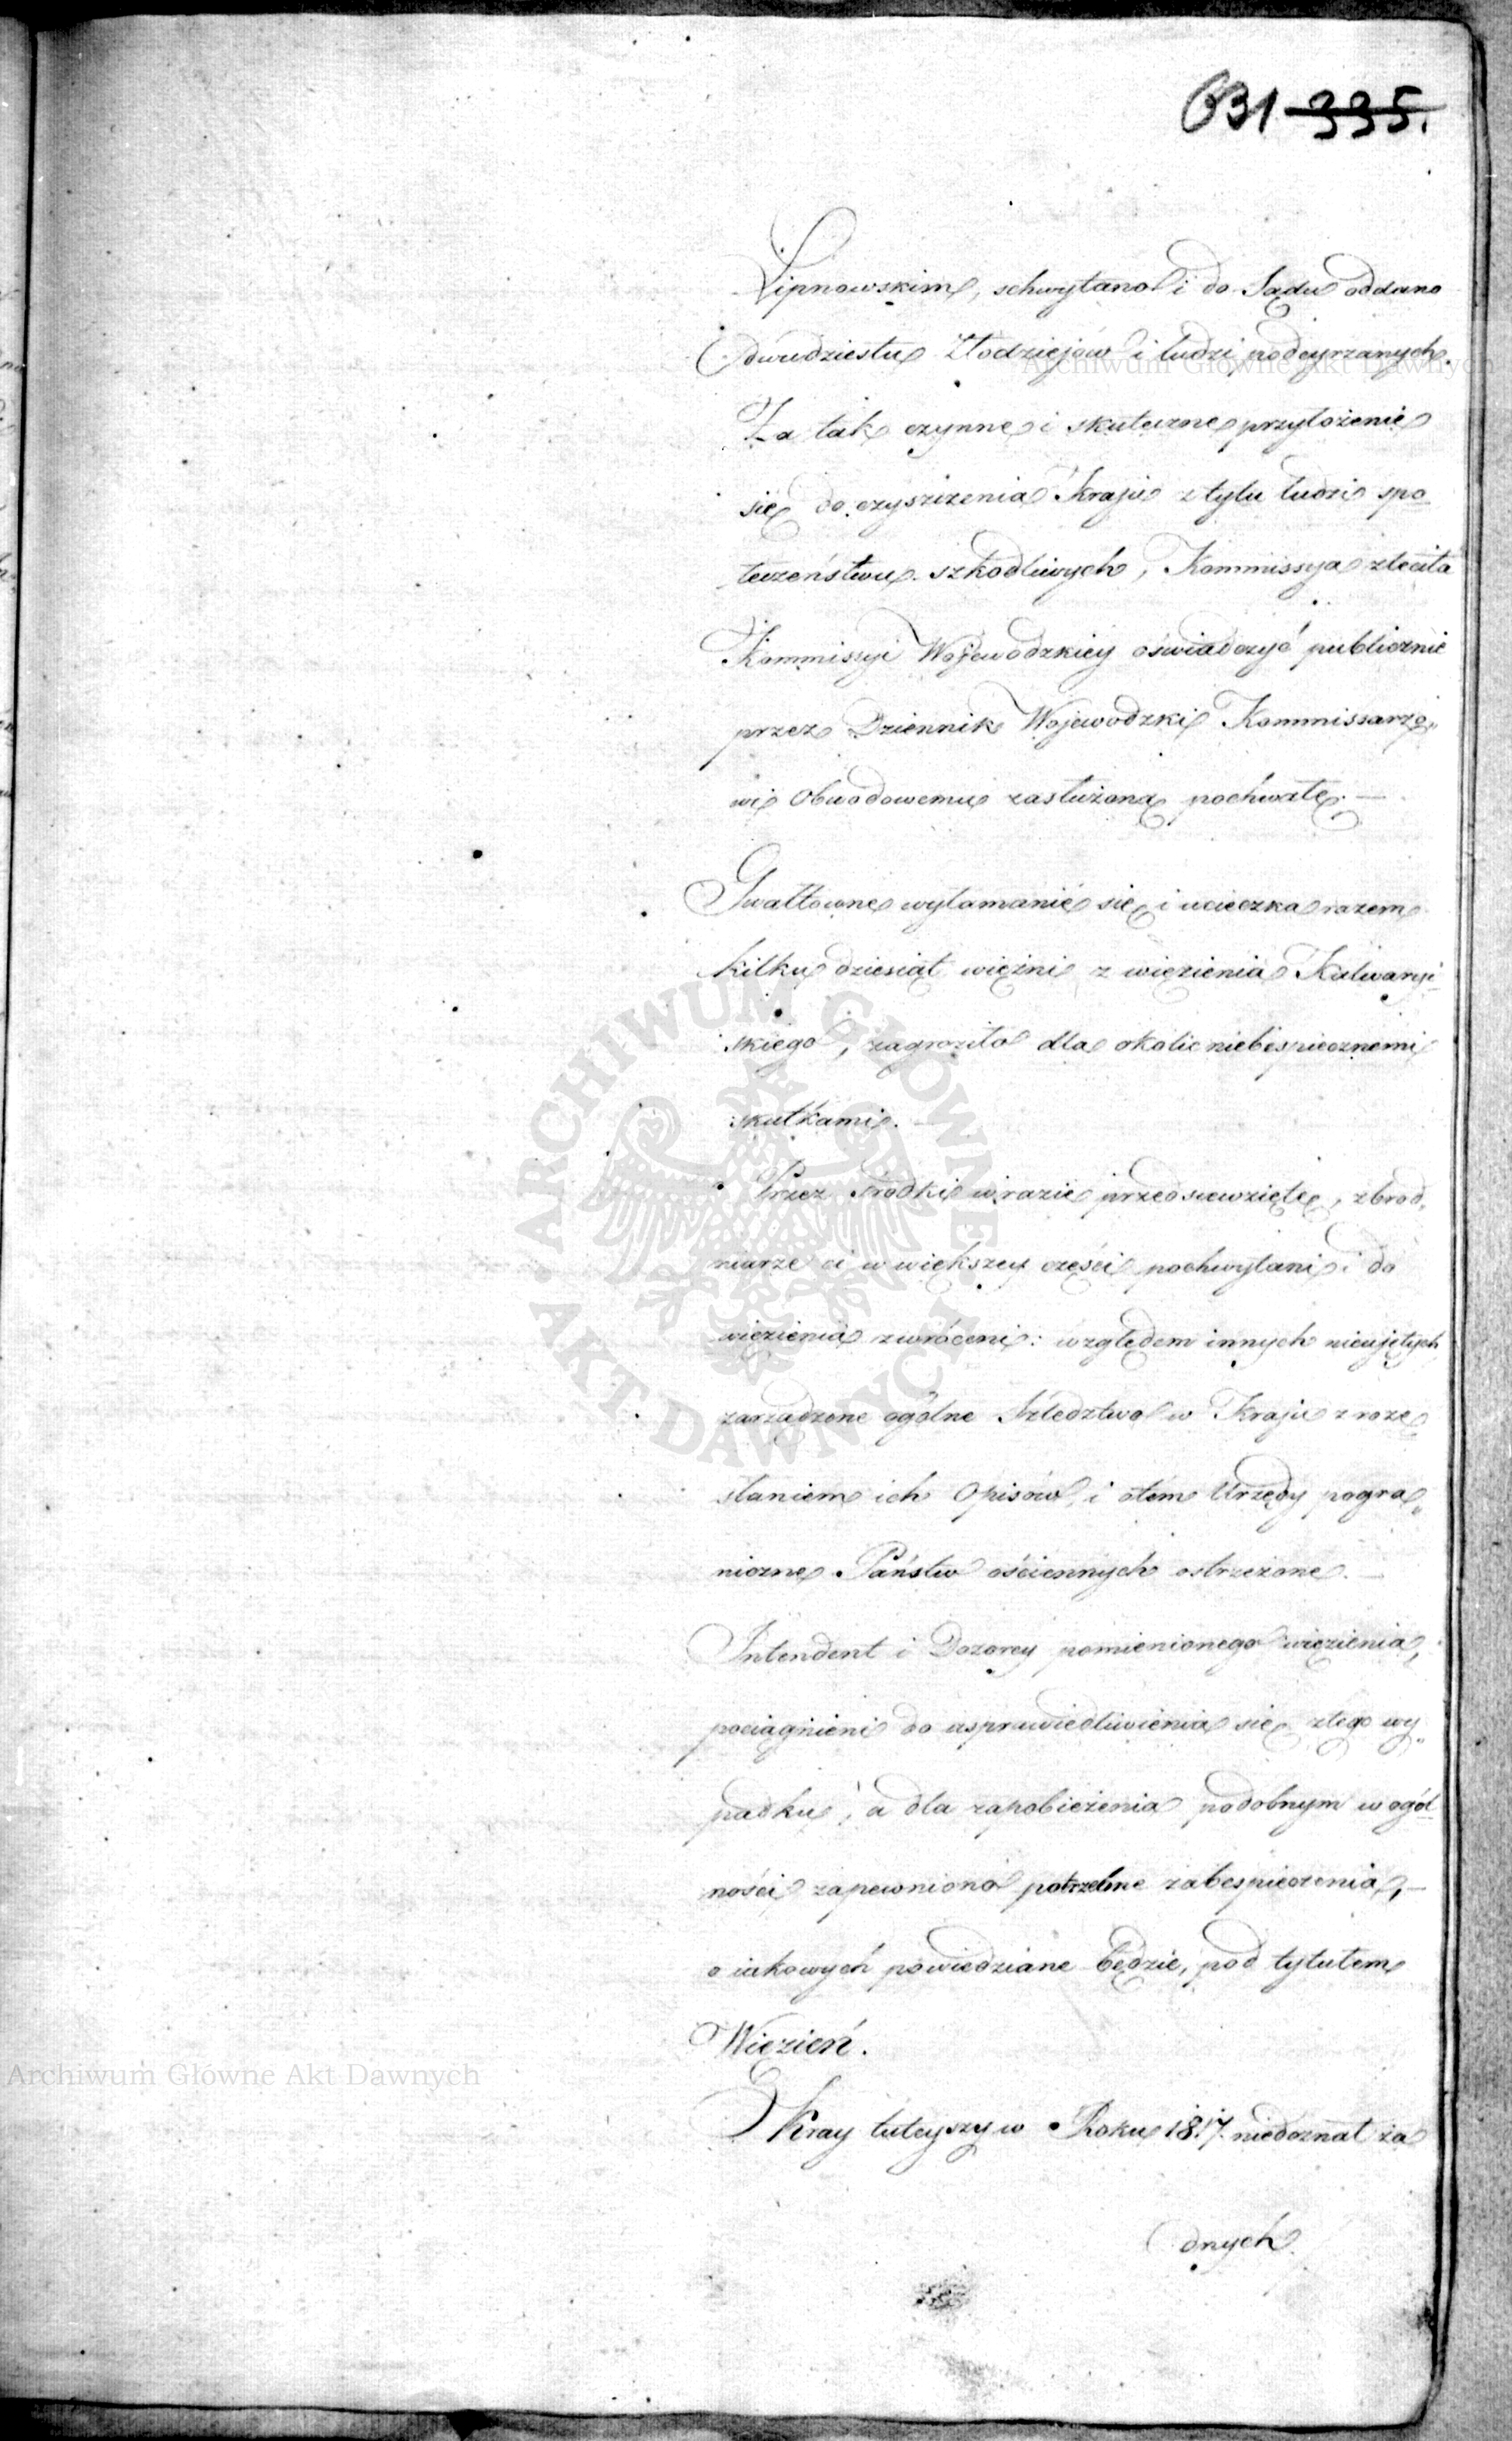 631 335.
Lipnowskim, schwytano i do Sądu oddano
dwudziestu Złodziejów i ludzi podeyrzanych.
Archiwum Główne Akt Dawnych
Za tak czynne i skuteczne przyłożenie
się do czyszczenia Kraju z tylu ludzi spo-
łeczeństwu szkodliwych, Kommissya zleciła
Kommissyi Wojewodzkiey oświadczyć publicznie
przez Dziennik Wojewodzki Kommissarzo„
wi Obwodowemu zasłużoną pochwałę. —
Gwałtowne wyłamanie się i ucieczka razem
kilku dziesiąt więźni z więzienia Kalwaryi-
skiego, zagroziło dla okolic niebespiecznemi
skutkami.
ARCHIWUM GŁÓWNE AKT DAWNYCH
Przez środki w razie przedsiewzięte, zbrod„
niarze ci w większey części pochwytani i do
więzienia zwróceni: względem innych nieujętych
zarządzone ogólne Szledztwo w Kraju z roze„
słaniem ich Opisów, i otem Urzędy pogra„
niczne Państw ościennych ostrzeżone. —
Intendent i Dozorcy pomienionego więzienia,
pociągnieni do usprawiedliwienia się z tego wy„
padku, a dla zapobieżenia podobnym w ogól-
ności zapewniono potrzebne zabespieczenia, —
o iakowych powiedziane będzie, pod tytułem
Więzień.
Archiwum Główne Akt Dawnych
Kray tuteyszy w Roku 1817 niedoznał ża
dnych